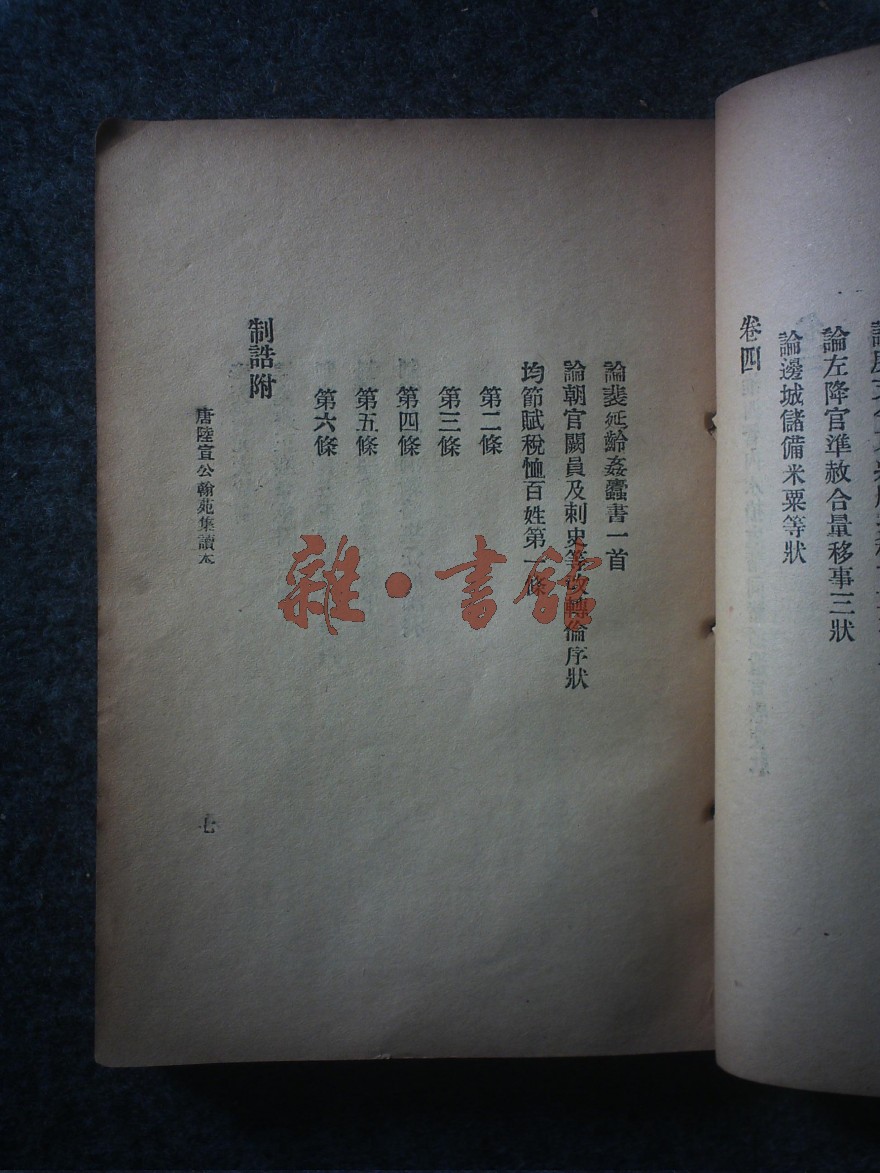 論左降官準赦合量移事三狀
論邊城儲備米粟等狀
卷四
論裴延齡姦蠹書一首
論朝官闕員及刺史等改轉倫序狀
均節賦稅恤百姓第一條
第二條
第三條
第四條
第五條
第六條
制誥附
唐陸宣公翰苑集讀本
七
雜·書館